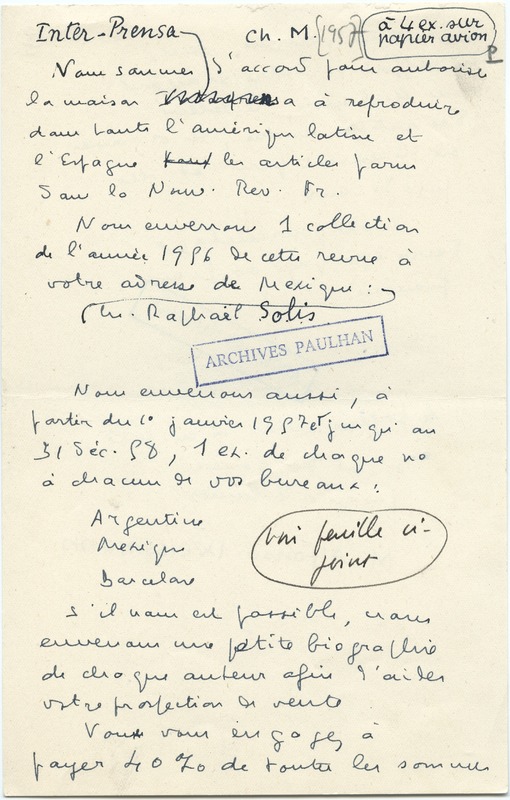 Inter-Prensa
Ch. M. [1957]
à 4 ex. sur
papier avion
P
Nous sommes d'accord pour autoriser
la maison à reproduire
dans toute l'amérique latine et
l'Espagne tous les articles parus
dans la Nouv. Rev. Fr.
Nous enverrons 1 collection
de l'année 1956 de cette revue à
votre adresse de Mexique :
M. Raphaël Solis
ARCHIVES PAULHAN
Nous enverrons aussi, à
partir du 1° janvier 1957 et jusqu'au
31 Déc. 58, 1 ex. de chaque no
à chacun de vos bureaux :
Argentine
Mexique
Barcelone
voir feuille ci-
joint
S'il nous est possible, nous
enverrons une petite biographie
de chaque auteur afin d'aider
votre prospection de vente
Vous vous engagez à
payer 40% de toutes les sommes